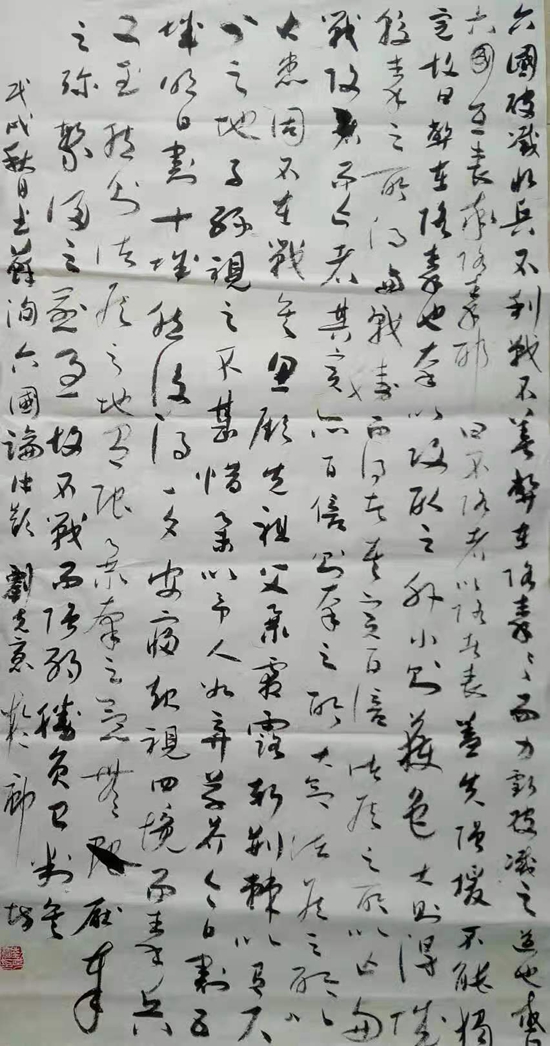 六國破滅非兵不利戰不善弊在賂秦〻而力虧破滅之道也或曰
六國互喪率賂秦耶曰不賂者以賂者喪蓋失強援不能獨
完故曰弊在賂秦也秦以攻取之外小則獲邑大則得城
較秦之所得與戰勝而得者其實百倍諸侯之所以亡與
戰敗而亡者其實亦百倍則秦之所大欲諸侯之所以
大患固不在戰矣思厥先祖父暴霜露斬荊棘以有尺
寸之地子孫視之不甚惜舉以予人如棄草芥今日割五
城明日割十城然後得一夕安寢起視四境而秦兵
又至然則諸侯之地有限暴秦之慾無厭奉
之彌繁侵之愈急故不戰而強弱勝負已判矣
戊戌秋日書蘇洵六國論 劉 意於廊坊